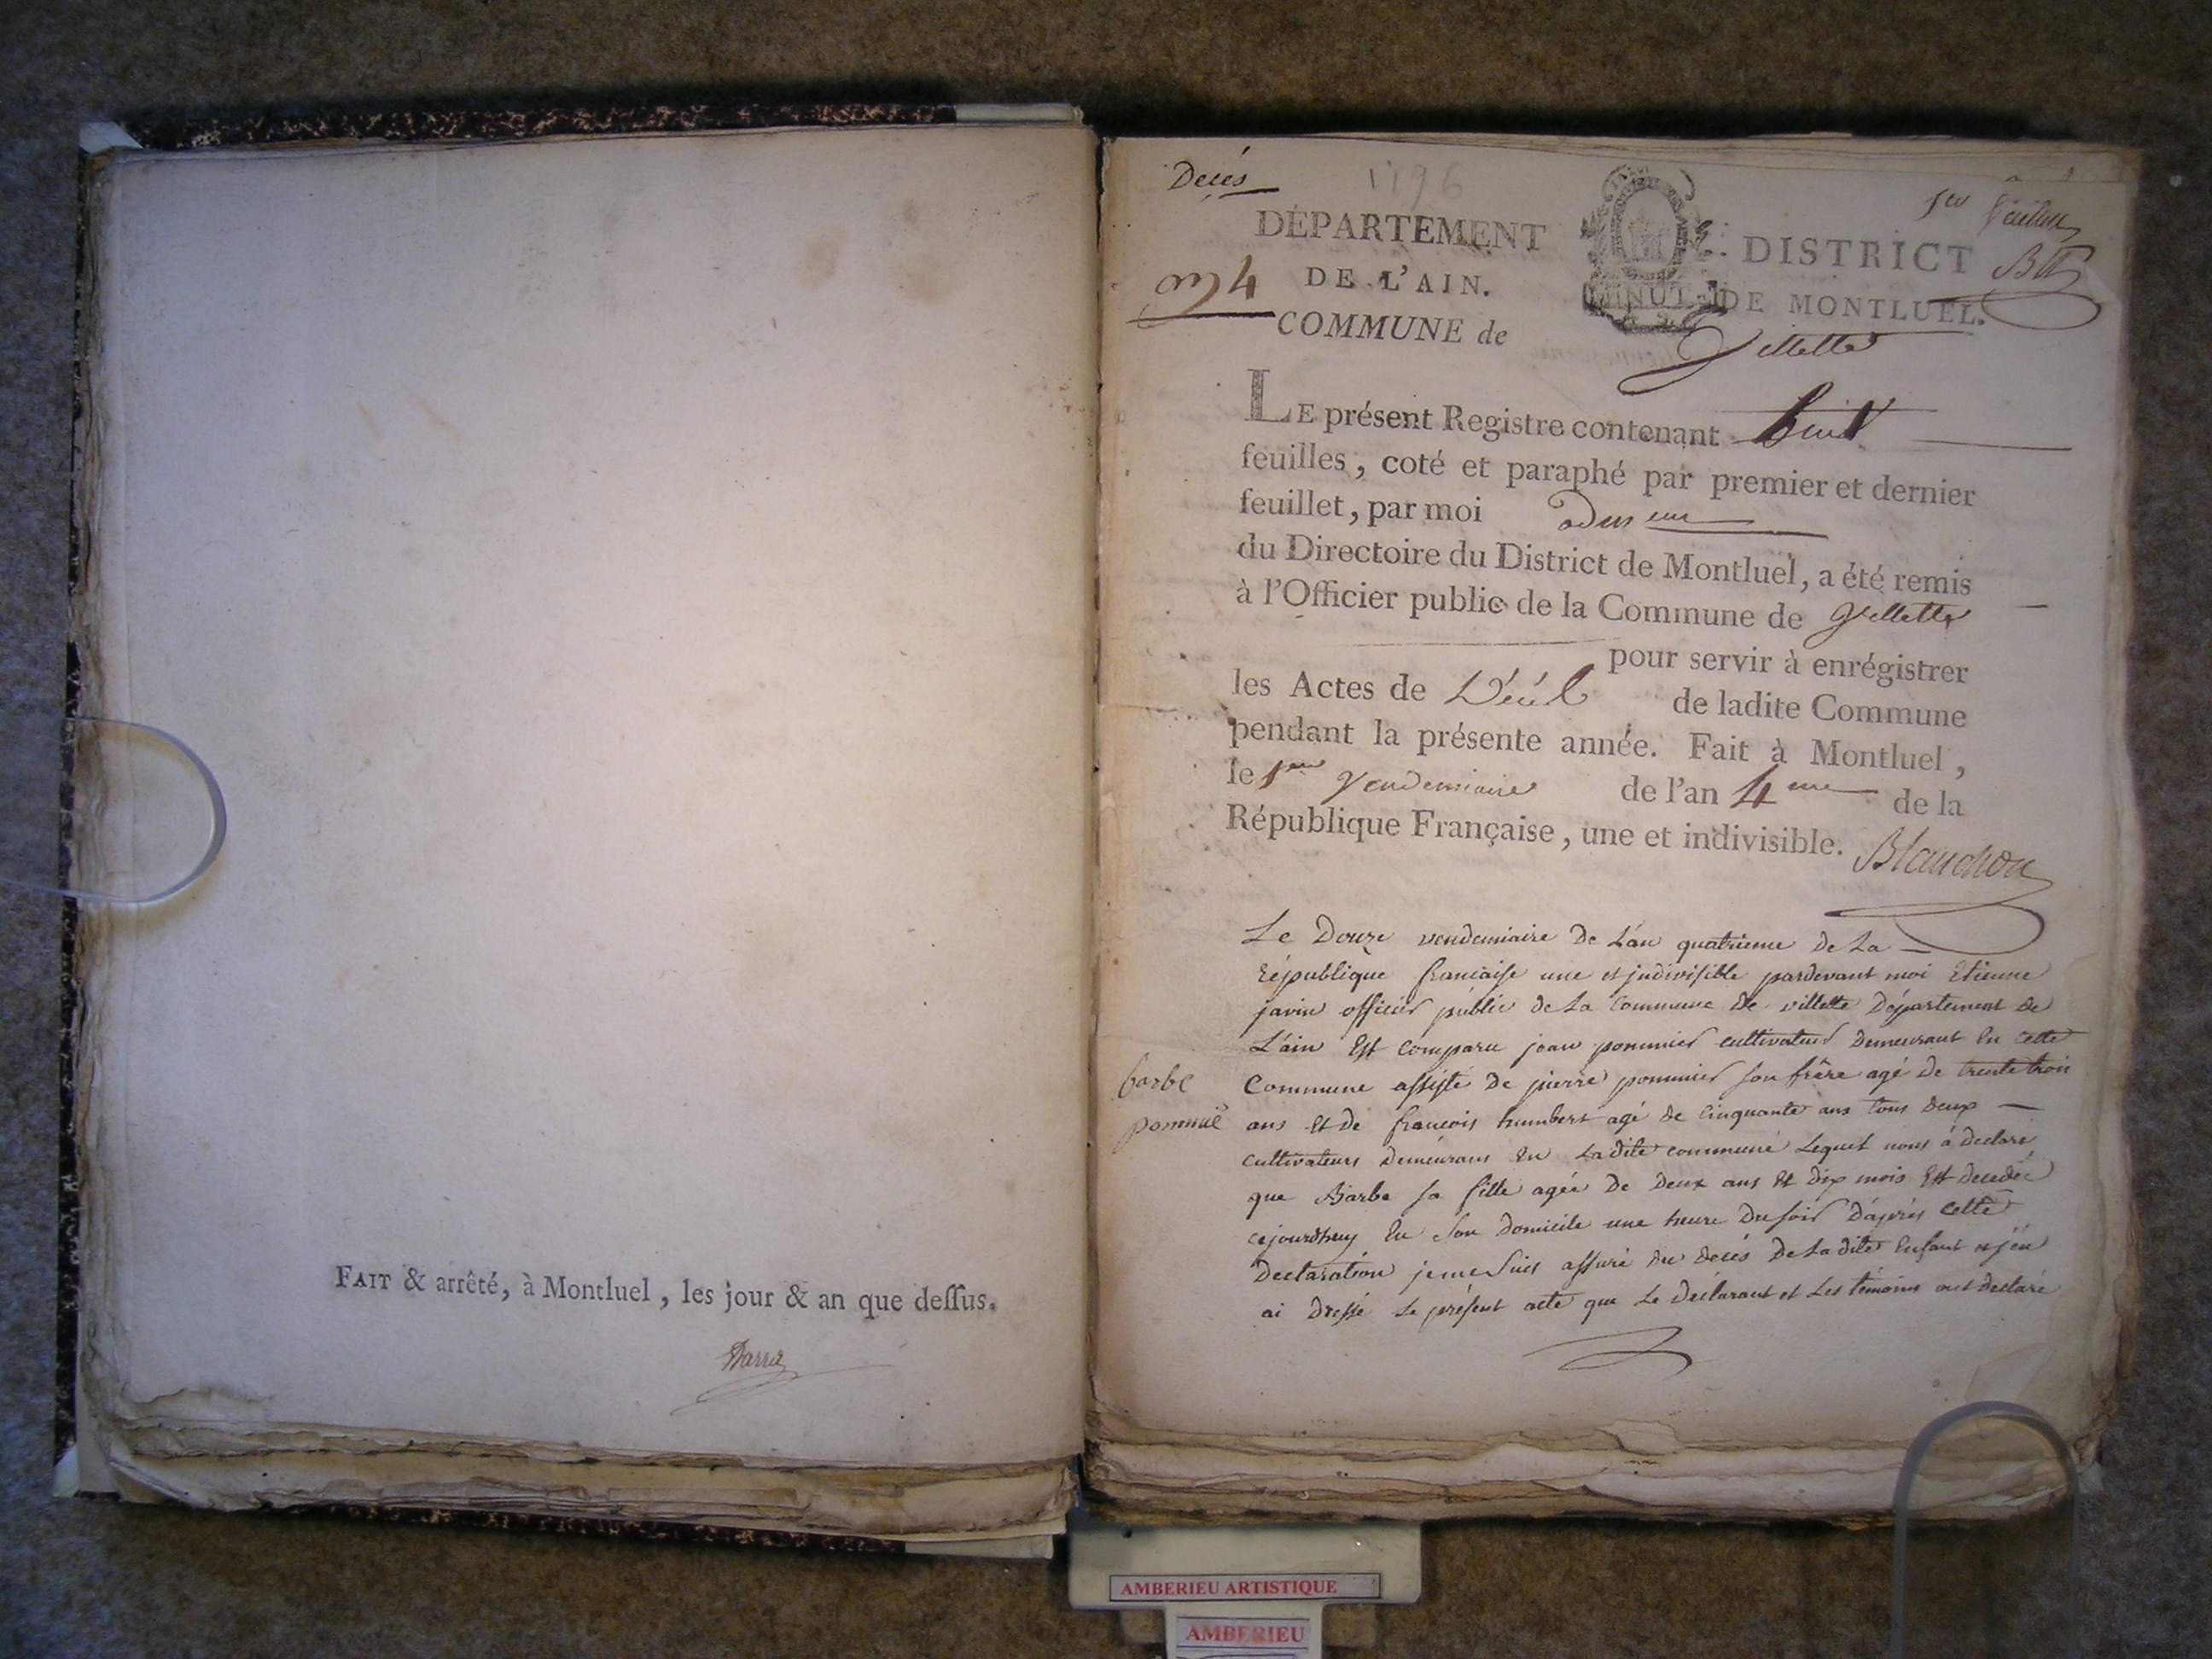 FAIT & arrêté, à Montluel, les jour & an que deſſus.
Decés
1796
1er feuillet
DÉPARTEMENT
DE L'AIN.
DISTRICT
DE MONTLUEL.
an 4
COMMUNE de Villette
LE présent Registre contenant huit
feuilles, coté et paraphé par premier et dernier
feuillet, par moi
du Directoire du District de Montluel, a été remis
à l'Officier public de la Commune de Villette
pour servir à enrégistrer
les Actes de Décés de ladite Commune
pendant la présente année. Fait à Montluel,
le 1er Vendemiaire de l'an 4eme de la
République Française, une et indivisible.
Blanchon
Le Douze vendemiaire De L'an quatrieme De La
République francaise une et jndivisible pardevant moi Etienne
javin officier public de La Commune De villette Département de
L'ain Est comparu jean pommier cultivateur Demeurant En cette
barbe
pommié
Commune assisté De pierre pommier son frêre agé De trente trois
ans Et De francois humbert agé de cinquante ans tous deux
cultivateurs Demeurans En Ladite commune Lequel nous à declaré
que Barbe sa fille agée De Deux ans Et Dix mois Est decedée
cejourdhuy En son Domicile une heure Du soir D'aprés cette
Declaration je me suis assuré du decés De La dite Enfant et j'en
ai Dressé Le présent acte que Le Déclarant et Les témoins ont declaré
AMBERIEU ARTISTIQUE
AMBERIEU